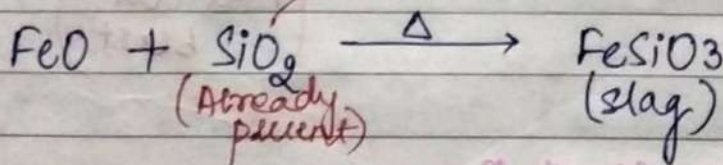 FeO + SiO₂ —Δ→ FeSiO3
(Already present) (slag)